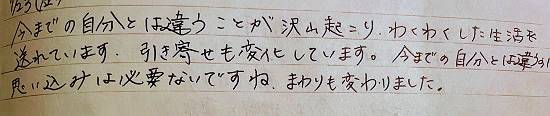 今までの自分とは違うことが沢山起こり、わくわくした生活を
送れています。引き寄せも変化しています。今までの自分とは違う
思い込みは必要ないですね。まわりも変わりました。